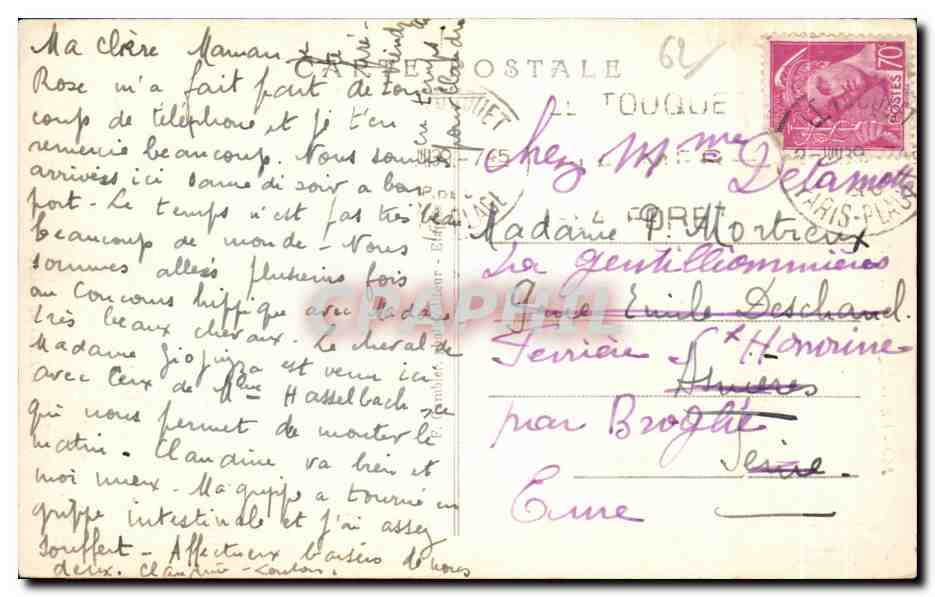 Ma chère Maman
Rose m'a fait part de ton
coup de téléphone et je t'en
remercie beaucoup. Nous sommes
arrivées ici samedi soir à bon
port - Le temps n'est pas très beau
beaucoup de monde - Nous
sommes allées plusieurs fois
au Concours hippique avec Madame
très beaux chevaux. Le cheval de
Madame
est venu ici
avec ceux de Mme Hasselbach, ce
qui nous permet de monter le
matin. Claudine va bien et
moi mieux - Ma grippe a tourné en
grippe intestinale et j'ai assez
souffert - Affectueux baisers de nous
deux.
CARTE POSTALE
62
LE TOUQUET
POSTES 70
LA FORET
PARIS-PLAGE
Chez Mme Delamotte
Madame P. Mortreux
La gentilhommière
Emile Deschanel.
Ferrière St Honorine
Asnières
par Broglie
Seine.
Eure
CPAPHIL